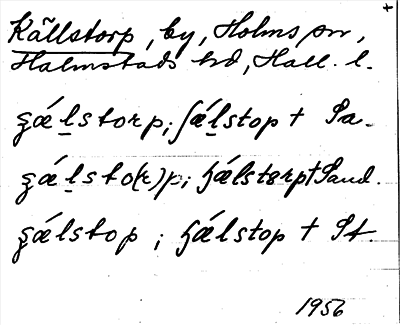 Källstorp, by, Holms sn,
Halmstads hd, Hall. l.
ʒǽl̠storp; ʃǽl̠stop † Sa.
ʒǽl̠sto(r)p; ɧǽlstɵrp † Sand.
ʒǽlstop ; ɧǽlstop † St.
1956